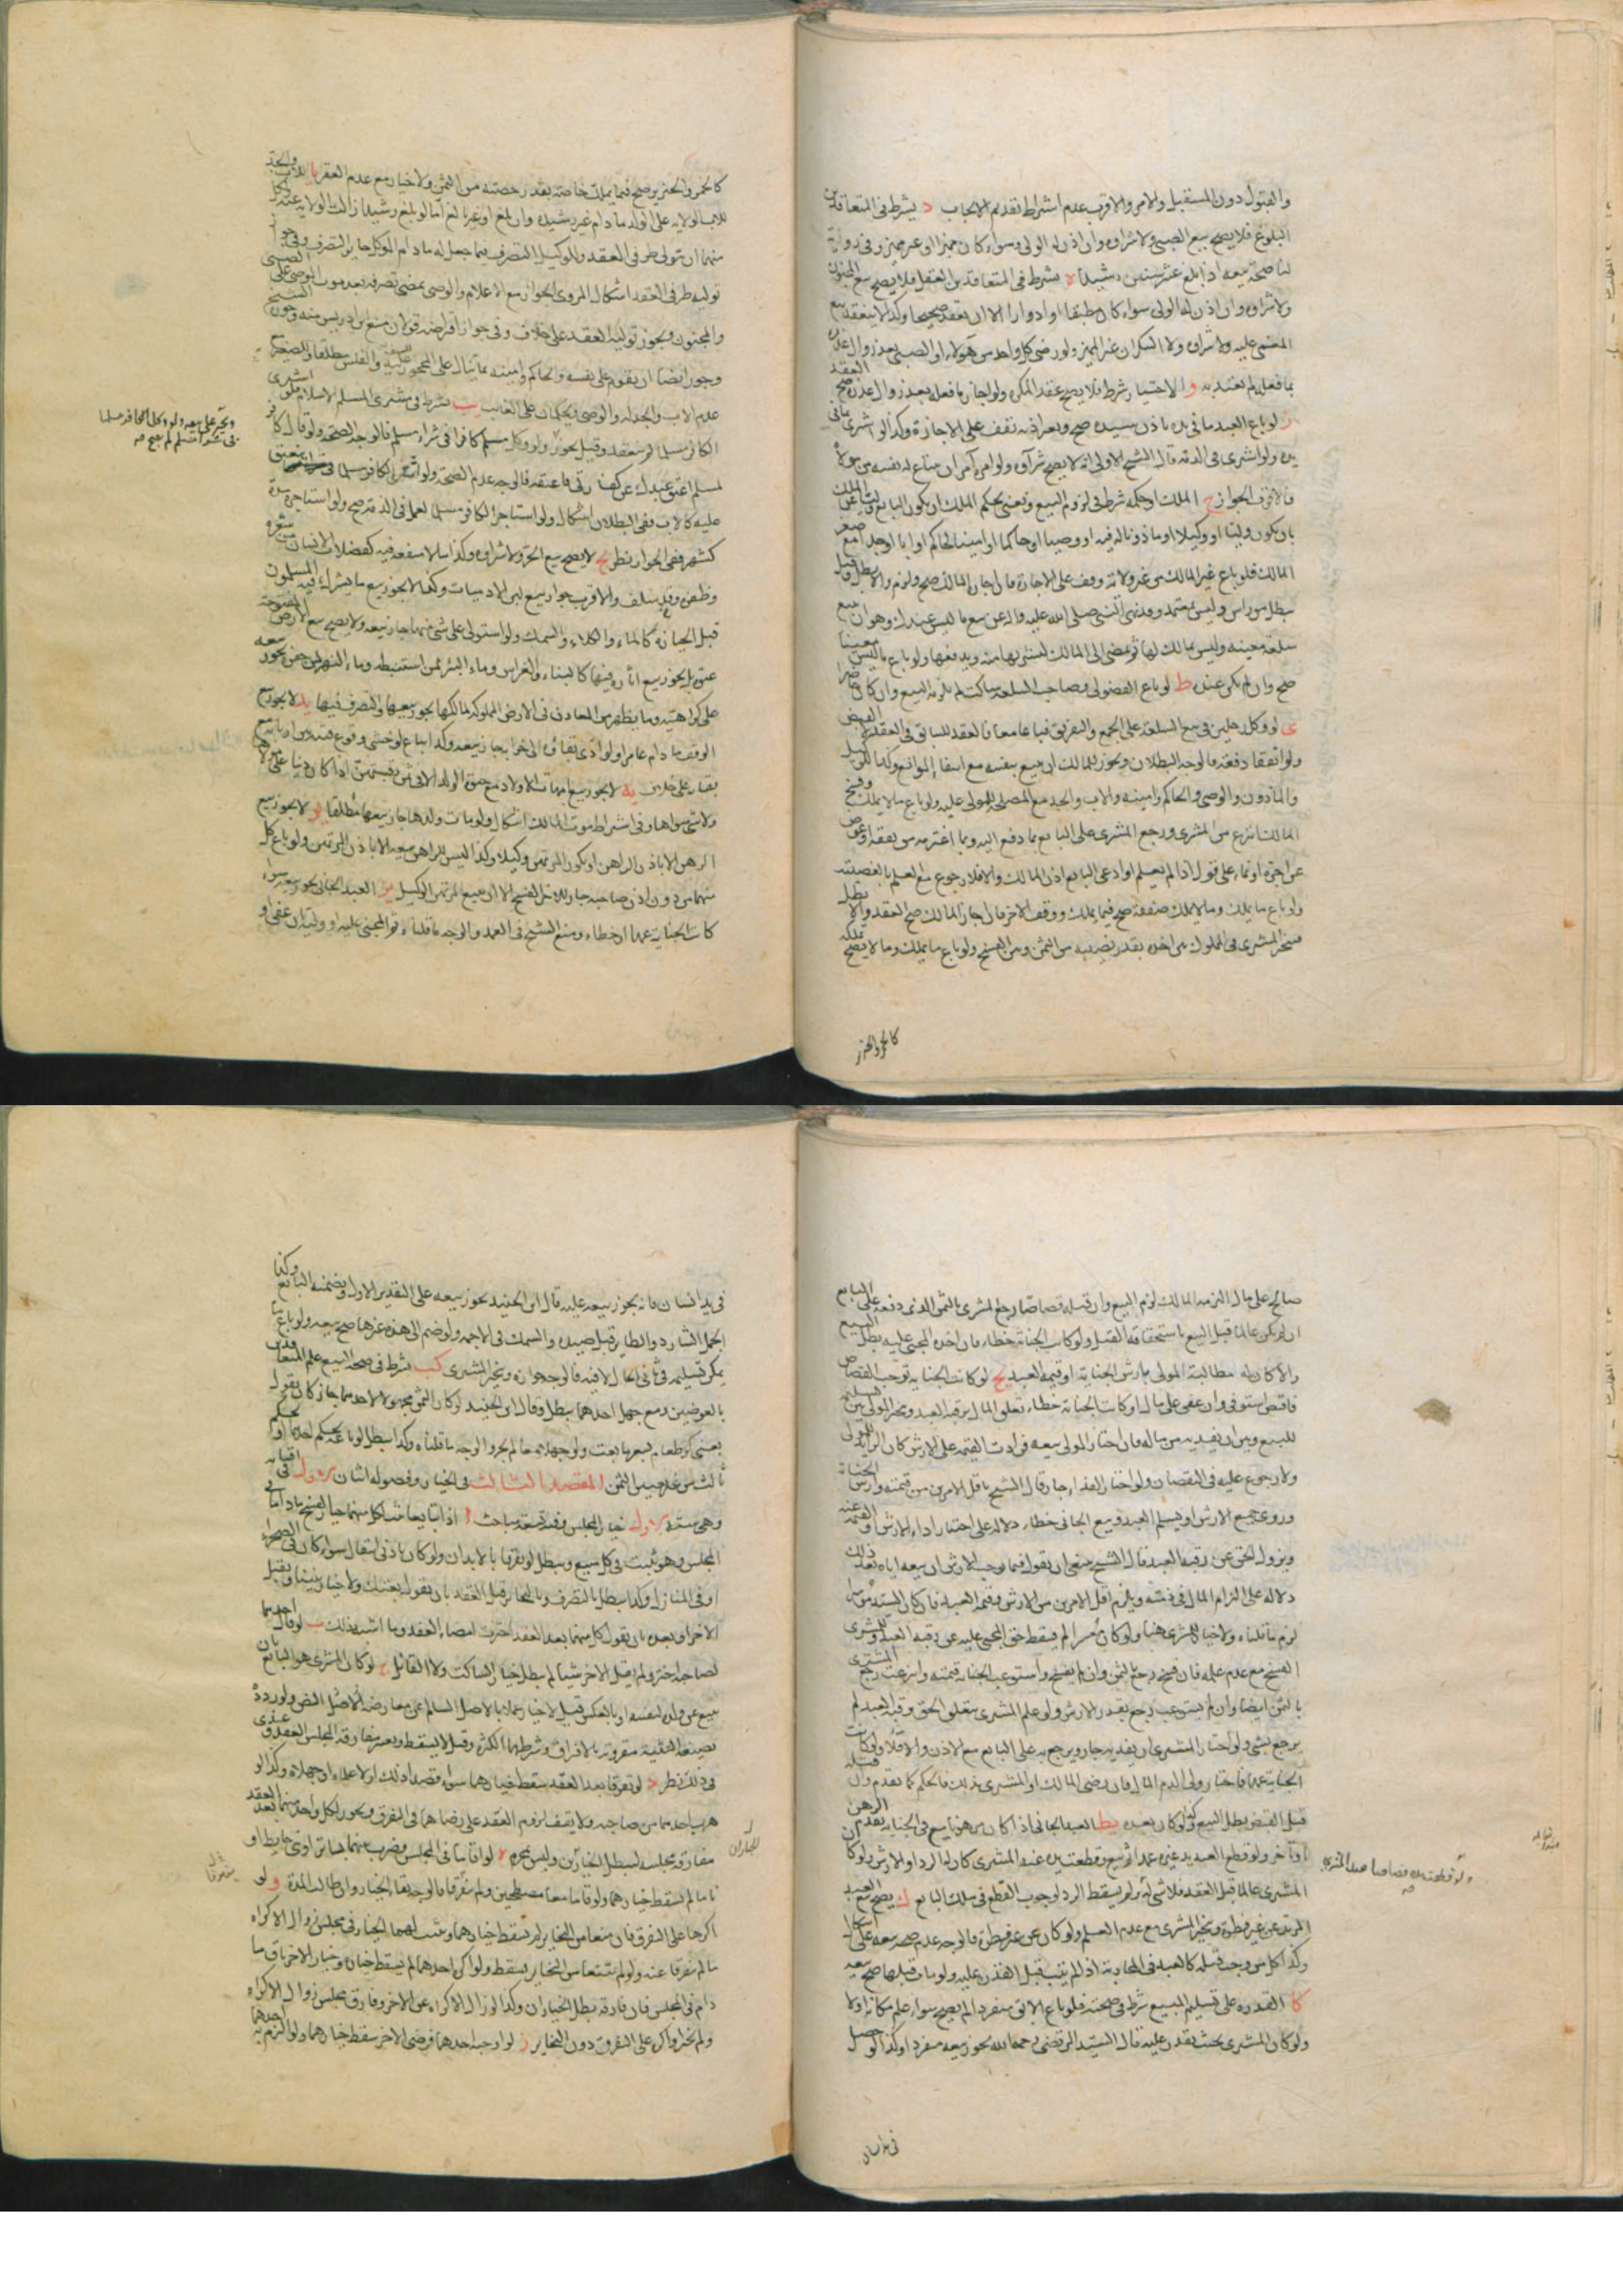 والقبول دون المستقبل والامر والاقرب عدم اشتراط تقديم الايجاب د يشترط فى المتعاقدين
البلوغ فلا يصح بيع الصبى ولا شراوه وان اذن له الولى وسواء كان مميزا او غير مميز وفى رواية
لنا صحة بيعه اذا بلغ عشر سنين رشيدا ه يشترط فى المتعاقدين العقل فلا يصح بيع المجنون
ولا شراوه وان اذن له الولى سواء كان مطبقا او ادوارا الا ان يعقد صحيحا وكذا لا ينعقد بيع
المغمى عليه ولا شراوه ولا السكران غير المميز ولو رضى كل واحد من هولاء او الصبى بعد زوال عذره
بما فعله لم يعتد به و الاختيار شرط فلا يصح عقد المكره ولو اجاز ما فعله بعد زوال عذره صح العقد
ز لو باع العبد ما فى يده باذن سيده صح وبغير اذنه يقف على الاجازة وكذا لو اشترى بما فى
يده ولو اشترى فى الذمة قال الشيخ الاولى انه لا يصح شراوه ولو امره آمر ان يبتاع له نفسه من مولاه
فالاقرب الجواز ح الملك او حكمه شرط فى لزوم البيع ونعنى بحكم الملك ان يكون البايع نايبا عن الملك
بان يكون وليا او وكيلا او ماذونا له فيه او وصيا او حاكما او امينا لحاكم او ابا او جدا مع صغر
المالك فلو باع غير المالك من غير ولاية وقف على الاجازة فان اجاز المالك صح ولزم والا بطل وقيل
يبطل من راس وليس بمعتمد وقد نهى النبى صلى الله عليه واله عن بيع ما ليس عندك وهو ان يبيع
سلعة معينه وليس بمالك لها ثم يمضى الى المالك ليشتريها منه ويدفعها ولو باع ما ليس معينا
صح وان لم يكن عنده ط لو باع الفضولى وصاحب السلعة ساكت لم يلزمه البيع وان كان حاضرا
ى لو وكل رجلين فى بيع السلعة على الجمع والتفريق فباعا معا فالعقد للسابق فى العقد لا القبض
ولو اتفقا دفعة فالوجه البطلان ويجوز للمالك ان يبيع بنفسه مع انتفاء الموانع وكذا للوكيل
والماذون والوصى والحاكم وامينه والاب والجد مع المصلحة للمولى عليه ولو باع ما لا يملك وفسخ
المالك انتزع من المشترى ورجع المشترى على البايع بما دفع اليه وبما اغترمه من نفقة او عوض
عن اجرة او نماء على قول اذا لم يعلم او ادعى البايع اذن المالك والا فلا رجوع مع العلم بالغصبية
ولو باع ما يملك وما لا يملك صفقة صح فيما يملك ووقف الاخر فان اجاز المالك صح العقد والا بطل
فيتخير المشترى فى المملوك بين اخذه بقدر نصيبه من الثمن وبين الفسخ ولو باع ما يملك وما لا يصح تملكه
كالخمر والخنزير
كالخمر والخنزير صح فيما يملك خاصة بقدر حصته من الثمن ولا خيار مع عدم الفقر يا للاب والجد
للاب الولايه على الولد ما دام غير رشيد وان بلغ او غير بالغ اما لو بلغ رشيدا زالت الولايه عنه ولكل
منهما ان يتولى طرفى العقد وللوكيل التصرف فيما جعل له ما دام الموكل جايز التصرف وفى جواز
توليه طرفى العقد اشكال المروى الجواز مع الاعلام والوصى يمضى تصرفه بعد موت الموصى على الصبى
والمجنون ويجوز توليه العقد على خلاف وفى جواز اقراضه قولان منع ابن ادريس منه وجوزه الشيخ
وجوز ايضا ان يقوم على نفسه والحاكم وامينه يما يتال على المحجور عليه للسفه والفلس مطلقا والصغير
عدم الاب والجد له والوصى ويحكمان على الغايب يب يشترط فى مشترى المسلم الاسلام فلو اشترى
الكافر مسلما لم ينعقد وقيل يجوز ولو وكل مسلم كافرا فى شراء مسلم فالوجه الصحة ولو قال كافر
لمسلم اعتق عبدك عن كفارتى فاعتقه فالوجه عدم الصحة ولو اشترى الكافر مسلما ينعتق
عليه كالاب ففى البطلان اشكال ولو استاجر الكافر مسلما لعمل فى الذمة صح ولو استاجره مدة
كشهر ففى الجواز نظر يج لا يصح بيع الحر ولا شراوه وكذا ما لا منفعة فيه كفضلات الانسان من شعره
وظفره وقد سلف والاقرب جواز بيع لبن الادميات وكما لا يجوز بيع ما يشترك فيه المسلمون
قبل الحيازه كالماء والكلاء والسمك ولو استولى على شئ منها جاز بيعه ولا يصح بيع الارض المفتوحة
عنوة بل يجوز بيع اثاره فيها كالبناء والغراس وماء البئر لمن استنبطه وماء النهر لمن حفره يجوز بيعه
على كراهيته وما يظهر من المعادن فى الارض المملوكة لمالكها يجوز بيعها والتصرف فيها يد لا يجوز بيع
الوقف ما دام عامرا ولو ادى بقاؤه الى خرابه جاز بيعه وكذا يباع لو خشى وقوع فتنه بين اربابه مع
بقايه على خلاف يه لا يجوز بيع امهات الاولاد مع حيوة الولد الا فى ثمن رقبتهن اذا كان دينا على مولاها
ولا شئ سواها وفى اشتراط موت المالك اشكال ولو مات ولدها جاز بيعها مطلقا يو لا يجوز بيع
الرهن الا باذن الراهن او يكون المرتهن وكيلا وكذا ليس للراهن بيعه الا باذن المرتهن ولو باع كل
منهما من دون اذن صاحبه جاز للاخر الفسخ الا ان يبيع المرتهن الوكيل يز العبد الجانى يجوز بيعه سواء
كانت الجناية عمدا او خطاء ومنع الشيخ فى العمد والوجه ما قلناه ثم المجنى عليه او وليه ان عفى او
ويجبر على بيعه ولو وكل الكافر مسلما
فى شراء مسلم لم يصح صح
صالح على مال التزمه المالك لزم البيع وان قتله قصاصا رجع المشترى بالثمن الذى دفعه على البايع
ان لم يكن عالما قبل البيع باستحقاقه القتل ولو كانت الجناية خطاء فان اخذه المجنى عليه بطل البيع
والا كان له مطالبة المولى بارش الجناية او قيمة العبد يح لو كانت الجنايه توجب القصاص
فاقتص استوفى وان عفى على مال او كانت الجناية خطاء تعلق المال برقبة العبد ويتخير المولى بين تسليمه
للبيع وبين ان يفديه من ماله فان اختار المولى بيعه فزادت القيمة على الارش كان الزايد للمولى
ولا رجوع عليه فى النقصان ولو اختار الفداء جاز قال الشيخ باقل الامرين من قيمته وارش الجناية
وروى جميع الارش او يسلم العبد وبيع الجانى خطاء دلالة على اختيار اداء الارش او القيمة عنه
ويزول الحق عن رقبة العبد قال الشيخ ينبغى ان يقول فيما يوجب الارش ان بيعه اياه بعد ذلك
دلاله على التزام المال فى ذمته ويلزم اقل الامرين من الارش وقيمة العبد فان كان السيد موسرا
لزم ما قلناه ولا خيار للمشترى هنا ولو كان معسرا لم يسقط حق المجنى عليه عن رقبة العبد وللمشترى
الفسخ مع عدم علمه فان فسخ رجع بالثمن وان لم يفسخ واستوعب الجنايه قيمته وانتزعت رجع المشترى
بالثمن ايضا وان لم يستوعب رجع بقدر الارش ولو علم المشترى بتعلق الحق برقبة العبد لم
يرجع بشئ ولو اختار المشترى ان يفديه جاز ويرجع به على البايع مع الاذن والا فلا ولو كانت
الجناية عمدا فاختار ولى الدم المال فان رضى المالك او المشترى بذلك فالحكم كما تقدم وان قتله
قبل القبض بطل البيع وكذا لو كان بعده يط العبد الجانى اذا كان مرهونا بيع فى الجناية تقدم الرهن
او تاخر ولو قطع العبد يد غيره عمدا ثم بيع وقطعت يده عند المشترى كان له الرد او الارش ولو كان
المشترى عالما قبل العقد فلا شئ له ولم يسقط الرد لوجوب القطع فى ملك البايع ك يصح بيع العبد
المرتد عن غير فطرة ويتخير المشترى مع عدم العلم ولو كان عن فطرة فالوجه عدم صحه بيعه على اشكال
وكذا كل من وجب قتله كالعبد فى المحاربة اذا لم يتب قبل القدرة عليه ولو مات قبلها صح بيعه
كا القدرة على تسليم المبيع شرط فى صحته فلو باع الابق منفردا لم يصح سواء علم مكانه او لا
ولو كان المشترى بحيث يقدر عليه قال السيد المرتضى رحمه الله يجوز بيعه منفردا وكذا لو حصل
ولو قطعت يده قصاصا عند المشترى
صح
فى يد انسان
فى يد انسان فانه يجوز بيعه عليه قال ابن الجنيد يجوز بيعه على التقدير الاول ويضمنه البايع وكذا
الجمل الشارد والطاير قبل صيده والسمك فى الاجمة ولو ضم الى هذه غيرها صح بيعه ولو باع ما
يمكن تسليمه فى ثانى الحال لا فيه فالوجه جوازه ويتخير المشترى كب يشترط فى صحة البيع علم المتعاقدين
بالعوضين ومع جهل احدهما يبطل وقال ابن الجنيد لو كان الثمن مجهولا لاحدهما جاز كان يقول
بعنى كر طعام بسعر ما بعت ولو جهلاه معا لم يجز والوجه ما قلناه وكذا يبطل لو باعه بحكم احدهما او بحكم
ثالث من غير تعيين الثمن المقصد الثالث فى الخيار وفصوله اثنان الاول فى اقسامه
وهى ستة الاول خيار المجلس وفيه تسعة مباحث ا اذا تبايعا ثبت لكل منهما خيار الفسخ ما داما فى
المجلس وهو يثبت فى كل مبيع ويبطل لو تفرقا بالابدان ولو كان بادنى انتقال سواء كان فى الصحراء
او فى المنازل وكذا يبطل بالتصرف وبالتخاير قبل العقد بان يقول بعتك ولا خيار بيننا ويقبل
الاخر او بعده بان يقول كل منهما بعد العقد اخترت امضاء العقد وما اشبه ذلك ب لو قال احدهما
لصاحبه اختر ولم يقل الاخر شيئا لم يبطل خيار الساكت ولا القائل ج لو كان المشترى هو البايع بان
يبيع عن ولده لنفسه او بالعكس قيل لا خيار عملا بالاصل السالم عن معارضة الاصل النص ولوروده
بصيغة التثنية مقرونة بالافتراق وشرطهما الكثرة وقيل لا يسقط ويعتبر مفارقة المجلس العقد وعندى
فى ذلك نظر د لو تفرقا بعد العقد سقط خيارهما سواء قصدا ذلك او لا علماه او جهلاه وكذا لو
هرب احدهما من صاحبه ولا يقف لزوم العقد على رضاهما فى التفرق ويجوز لكل واحد منهما بعد العقد
مفارقه مجلسه ليبطل الخياران وليس بمحرم ه لو اقاما فى المجلس وضرب بينهما بساتر او بنى حايط او
ناما لم يسقط خيارهما ولو قاما معا مصطحبين ولم يتفرقا فالوجه بقاء الخيار وان طالت المدة و لو
اكرها على التفرق فان منعا من التخاير لم يسقط خيارهما ويثبت لهما الخيار فى مجلس زوال الاكراه
ما لم يتفرقا عنه ولو لم يمنعا من التخاير يسقط ولو اكره احدهما لم يسقط خياره وخيار الاخر باق ما
دام فى المجلس فان فارقه بطل الخياران وكذا لو زال الاكراه عن الاخر وفارق مجلس زوال الاكراه
ولم يختر او اكره على التفرق دون التخاير ز لو اوجبه احدهما فرضى الاخر سقط خيارهما ولو التزم به احدهما